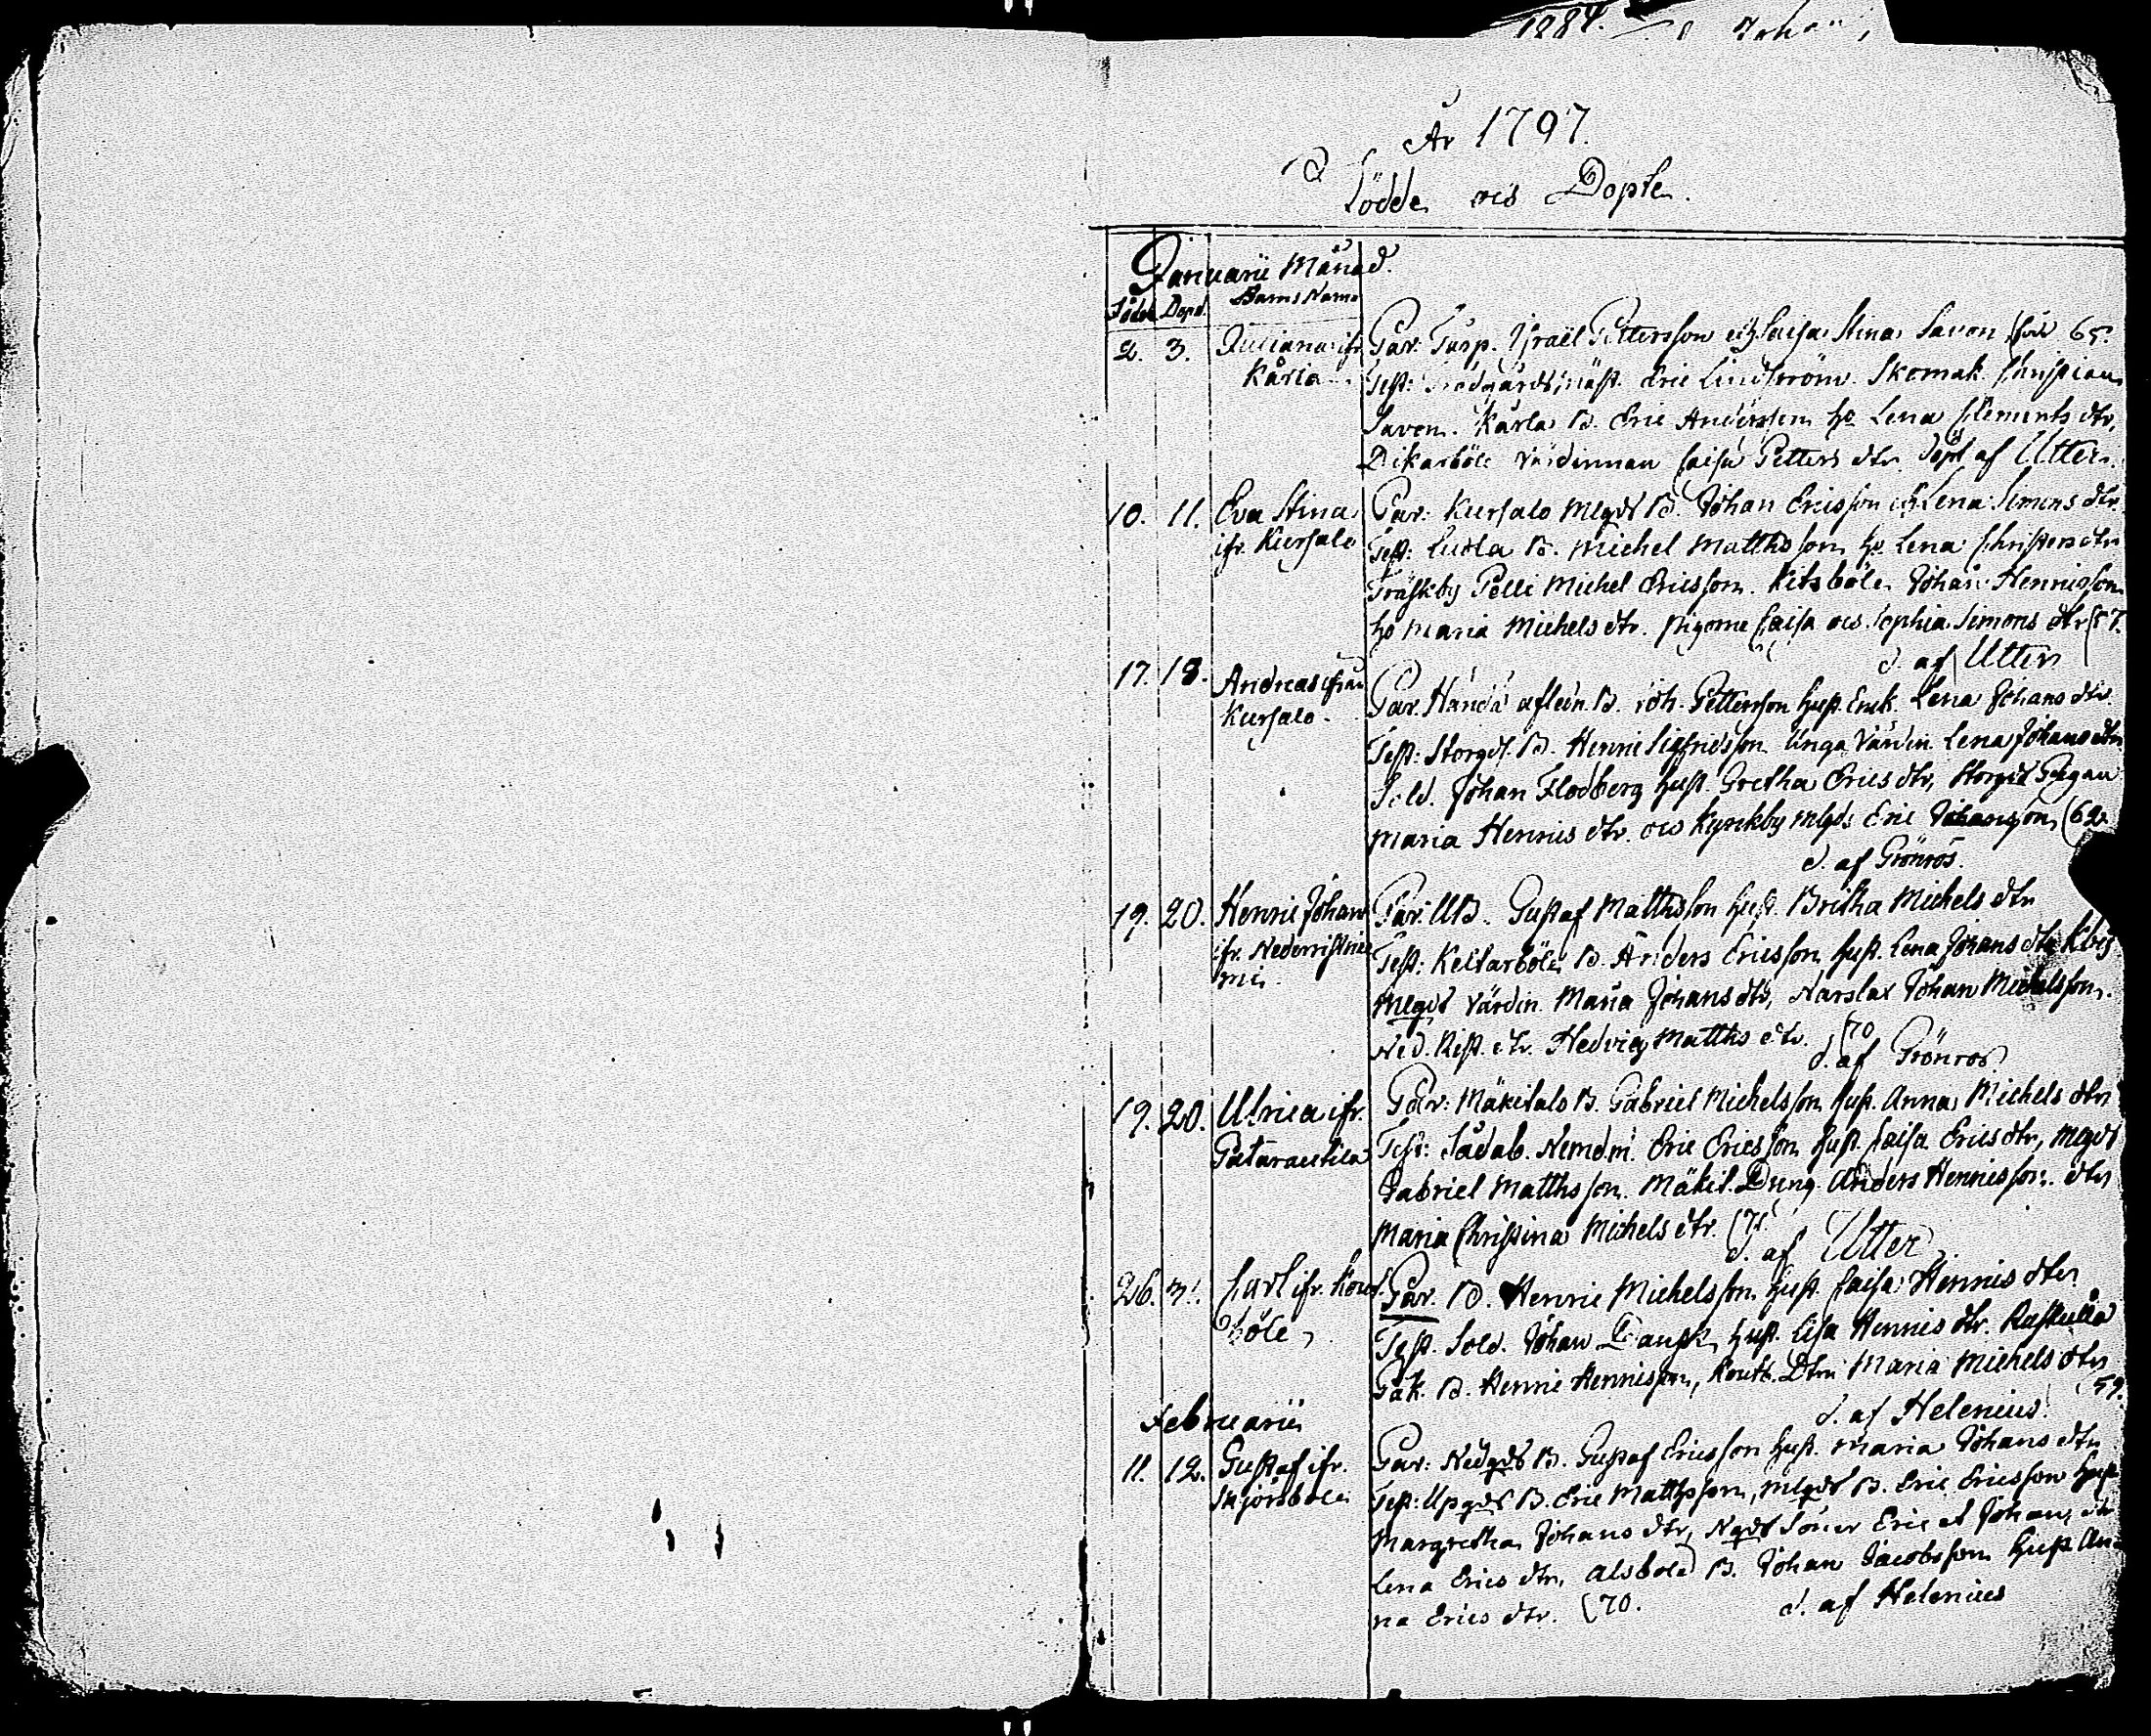 1784. Johan
År 1797.
Födde och Döpte.
Januarii Månad.
Född. Döpt. Barns Namn
2. 3. Juliana ifr. Kårla
Par: Insp. Israël Pettersson och Caisa Stina Savon för 65.
Test: Trädgårdsmäst. Eric Lindström. Skomak. Christian
Savon. Kårla B. Eric Andersson ho. Lena Clements dtr,
Dikarböle Värdinnan Caisa Petters dtr. döpt af Utter.
10. 11. Eva Stina ifr. Kursalo
Par: Kursalo Mlgds B. Johan Ericsson och Lena Simons dtr.
Test: B. Michel Matthsson ho. Lena Christers dtr
Träskby Pelli Michel Ericsson. Kitsböle Johan Henricsson
ho Maria Michels dtr. pigorne Caisa och Sophia Simons dtr (57.
d. af Utter
17. 18. Andreas ifrån Kursalo.
Par. aflidn. B. Joh. Pettersson hust. Enk. Lena Johans dtr.
Test: Storgds. B. Henric Sigfridsson Unga Värdin. Lena Johans dtr
Sold. Johan Flodberg hust. Gretha Erics dtr, Storgds Pigan
Maria Henrics dtr. och Kyrckby mlgds Eric Johansson, (62
d. af Grönros.
19. 20. Henric Johan ifr. Nederristniemi.
Par: UB. Gustaf Matthsson hust. Britha Michels dtr
Test: Keitarböle B. Anders Ericsson hust. Lena Johans dtr Kby
Mlgds Värdin. Maria Johans dtr, Narslax Johan Michelsson.
Ned. Rist. dtr. Hedvig Matths dtr. (70
d. af Grönros.
19. 20. Ulrica ifr. Patarautila
Par: Mäkitalo B. Gabriel Michelsson hust. Anna Michels dtr
Test: Sådab. Nemdm. Eric Ericsson hust. Caisa Erics dtr, mlgds
Gabriel Matthsson. Mäkit. Dräng Anders Henricsson. dtr
Maria Christina Michels dtr. (71.
d. af Utter
26. 31. Carl ifr. böle
Par. B. Henric Michelsson hust. Caisa Henrics dtr
Test. Sold. Johan Dansk hust. Lisa Henrics dtr.
B. Henric Henricsson, Dtrn Maria Michels dtr
(59.
d. af Helenius.
Februarii
11. 12. Gustaf ifr. Skjörsböle
Par: Nedgds B. Gustaf Ericsson hust. Maria Johans dtr
Test: Upgds B. Eric Matthsson, Mlgds B. Eric Ericsson hust
Margretha Johans dtr, Ngds Söner Eric et Johan, dtr
Lena Erics dtr, Alsböle B. Johan Jacobsson hust An-
na Erics dtr. (70.
d. af Helenius